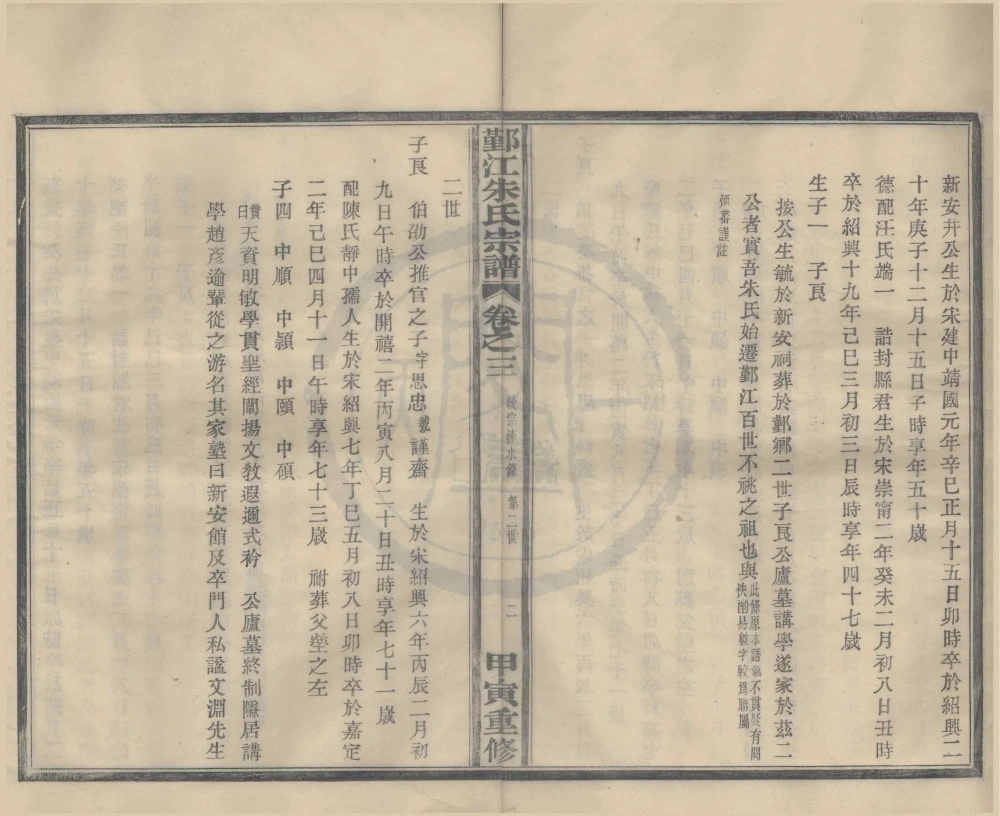 新安井公生於宋建中靖國元年辛巳正月十五日卯時卒於紹興二
十年庚子十二月十五日子時享年五十歲
德配汪氏端一　誥封縣君生於宋崇甯二年癸未二月初八日丑時
卒於紹興十九年己巳三月初三日辰時享年四十七歲
生子一　子艮
按公生毓於新安祠葬於鄞鄉二世子艮公廬墓講學遂家於茲二
公者實吾朱氏始遷鄞江百世不祧之祖也與此條原本語氣不貫疑有闕
佚酌易數字較爲聯屬
炳蕃謹註
鄞江朱氏宗譜　卷之三　統宗　第二世　二　甲寅重修
二世
子艮　伯劭公推官之子字思忠號謹齋　生於宋紹興六年丙辰二月初
九日午時卒於開禧二年丙寅八月二十日丑時享年七十一歲
配陳氏靜中孺人生於宋紹興七年丁巳五月初八日卯時卒於嘉定
二年己巳四月十一日午時享年七十三歲　祔葬父塋之左
子四　中順　中顥　中頤　中碩
贊曰天資明敏學貫聖經闡揚文敎遐邇式衿　公廬墓終制隱居講
學趙彥逾輩從之游名其家塾曰新安館及卒門人私諡文淵先生